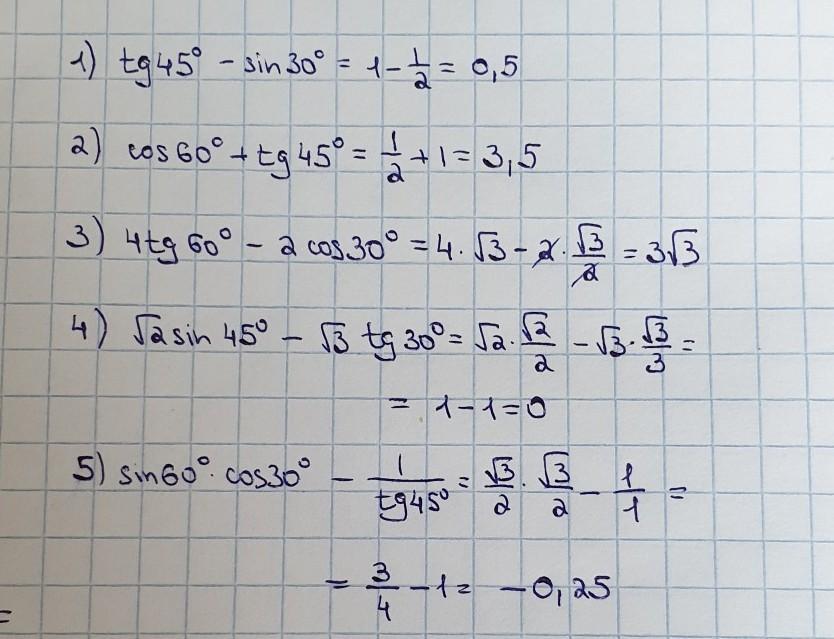 1) tg 45° - sin 30° = 1 - 1/2 = 0,5
2) cos 60° + tg 45° = 1/2 + 1 = 3,5
3) 4 tg 60° - 2 cos 30° = 4 · √3 - 2 · √3/2 = 3√3
4) √2 sin 45° - √3 tg 30° = √2 · √2/2 - √3 · √3/3 =
= 1 - 1 = 0
5) sin 60° · cos 30° - 1/tg 45° = √3/2 · √3/2 - 1/1 =
= 3/4 - 1 = -0,25
=